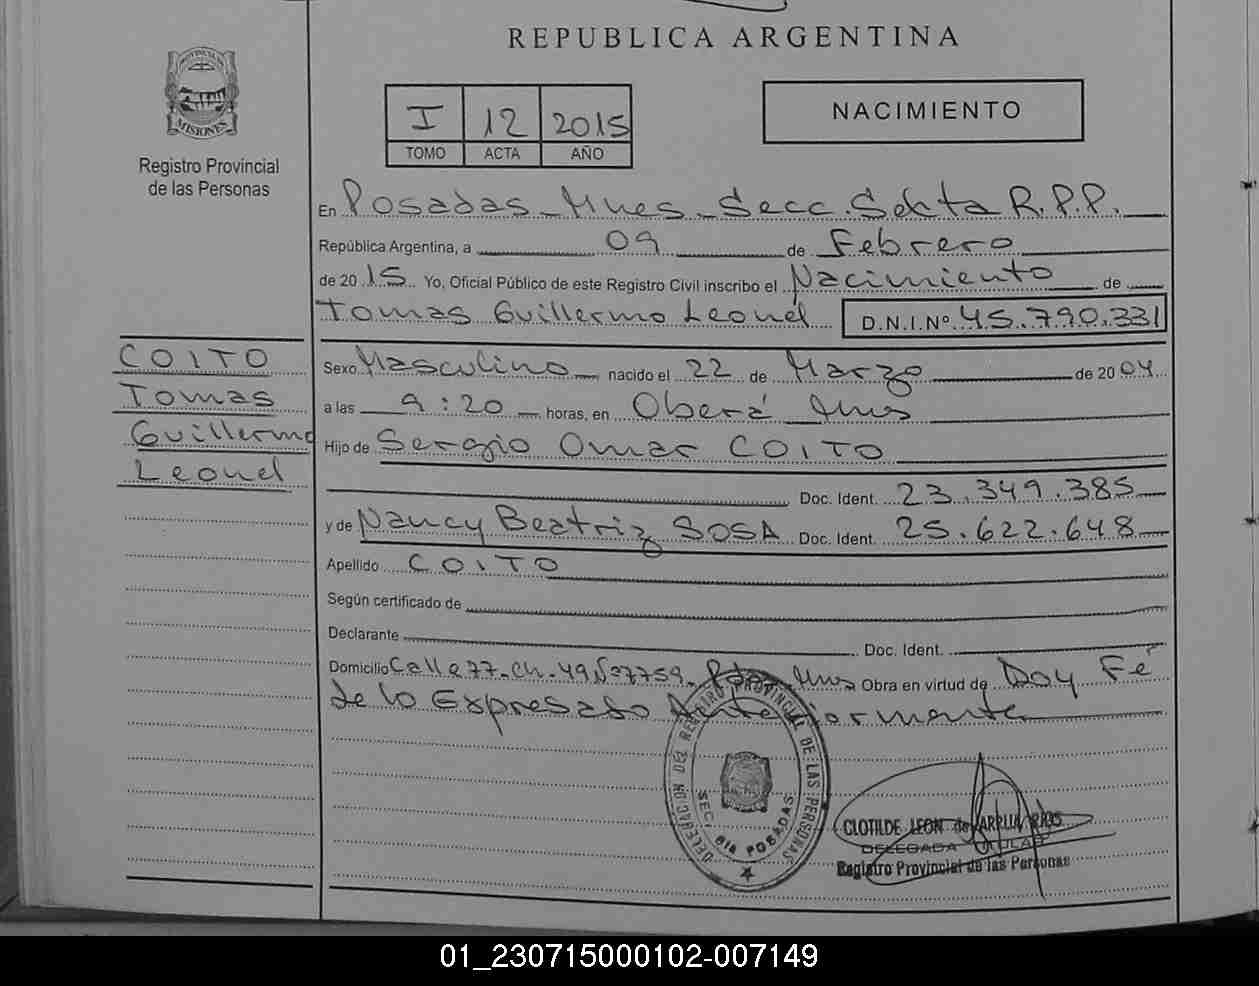 REPUBLICA ARGENTINA
PROVINCIA DE
MISIONES
Registro Provincial
de las Personas
I 12 2015
TOMO ACTA AÑO
NACIMIENTO
En Posadas - Mnes - Secc. Sexta R.P.P.
República Argentina, a 09 de Febrero
de 2015 Yo, Oficial Público de este Registro Civil inscribo el Nacimiento de
Tomas Guillermo Leonel D.N.I. Nº 45.790.331
COITO
Tomas
Guillermo
Leonel
Sexo Masculino nacido el 22 de Marzo de 2004
a las 9:20 horas, en Oberá Mnes
Hijo de Sergio Omar COITO
Doc. Ident. 23.349.385
y de Nancy Beatriz SOSA Doc. Ident. 25.622.648
Apellido COITO
Según certificado de
Declarante Doc. Ident.
Domicilio Calle 77. Ch. 49 Nº 7759. Pdas. Mnes Obra en virtud de Doy Fé
de lo Expresado Anteriormente
DELEGACION DEL REGISTRO PROVINCIAL DE LAS PERSONAS
SECC. 6ta POSADAS
CLOTILDE LEON de RIOS
DELEGADA TITULAR
Registro Provincial de las Personas
01_230715000102-007149